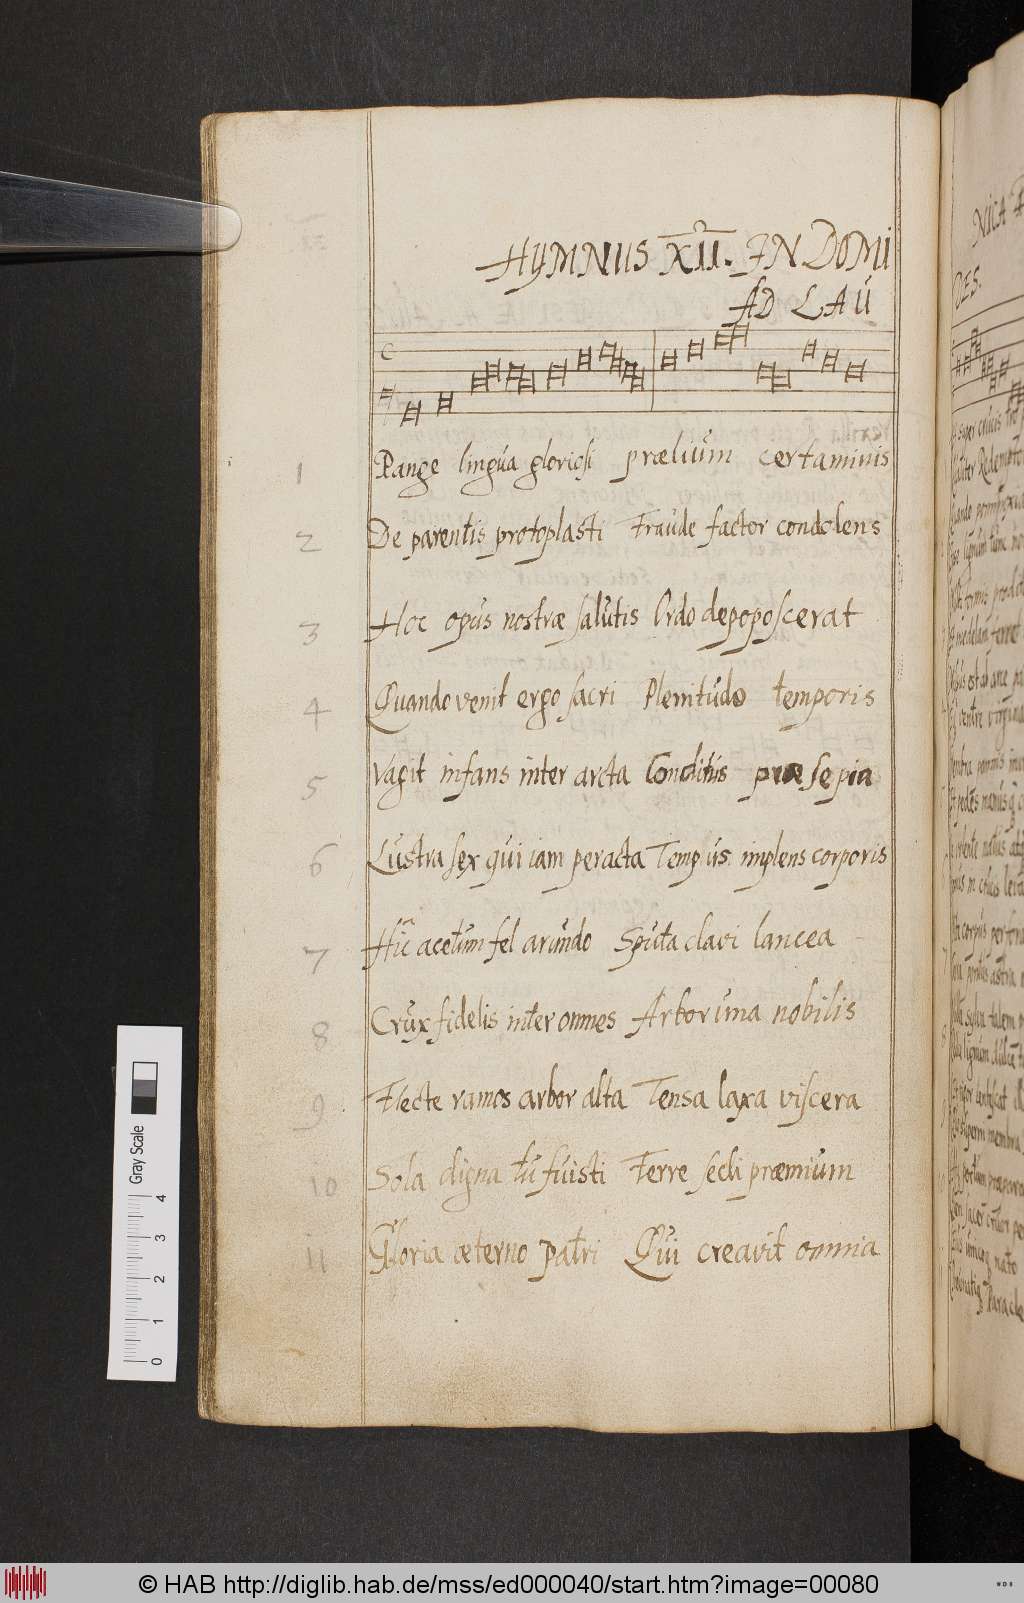 HYMNUS XII. IN DOMI
AD LAU
C
1 Pange lingua gloriosi prælium certaminis
2 De parentis protoplasti Fraude factor condolens
3 Hoc opus nostræ salutis Ordo depoposcerat
4 Quando venit ergo sacri Plenitudo temporis
5 Vagit infans inter arcta Conditus præsepia
6 Lustra sex qui iam peracta Tempus implens corporis
7 Hic acetum fel arundo Sputa clavi lancea
8 Crux fidelis inter omnes Arbor una nobilis
9 Flecte ramos arbor alta Tensa laxa viscera
10 Sola digna tu fuisti Ferre secli præmium
11 Gloria æterno patri Qui creavit omnia
NICA
DES.
super crucis
Redempto
Quando pomi
lignum tunc no
medelam ferret
est ab arce pa
ventre virginal
pedes manus
corpus
Gray Scale
0 1 2 3 4
© HAB http://diglib.hab.de/mss/ed000040/start.htm?image=00080
WDB